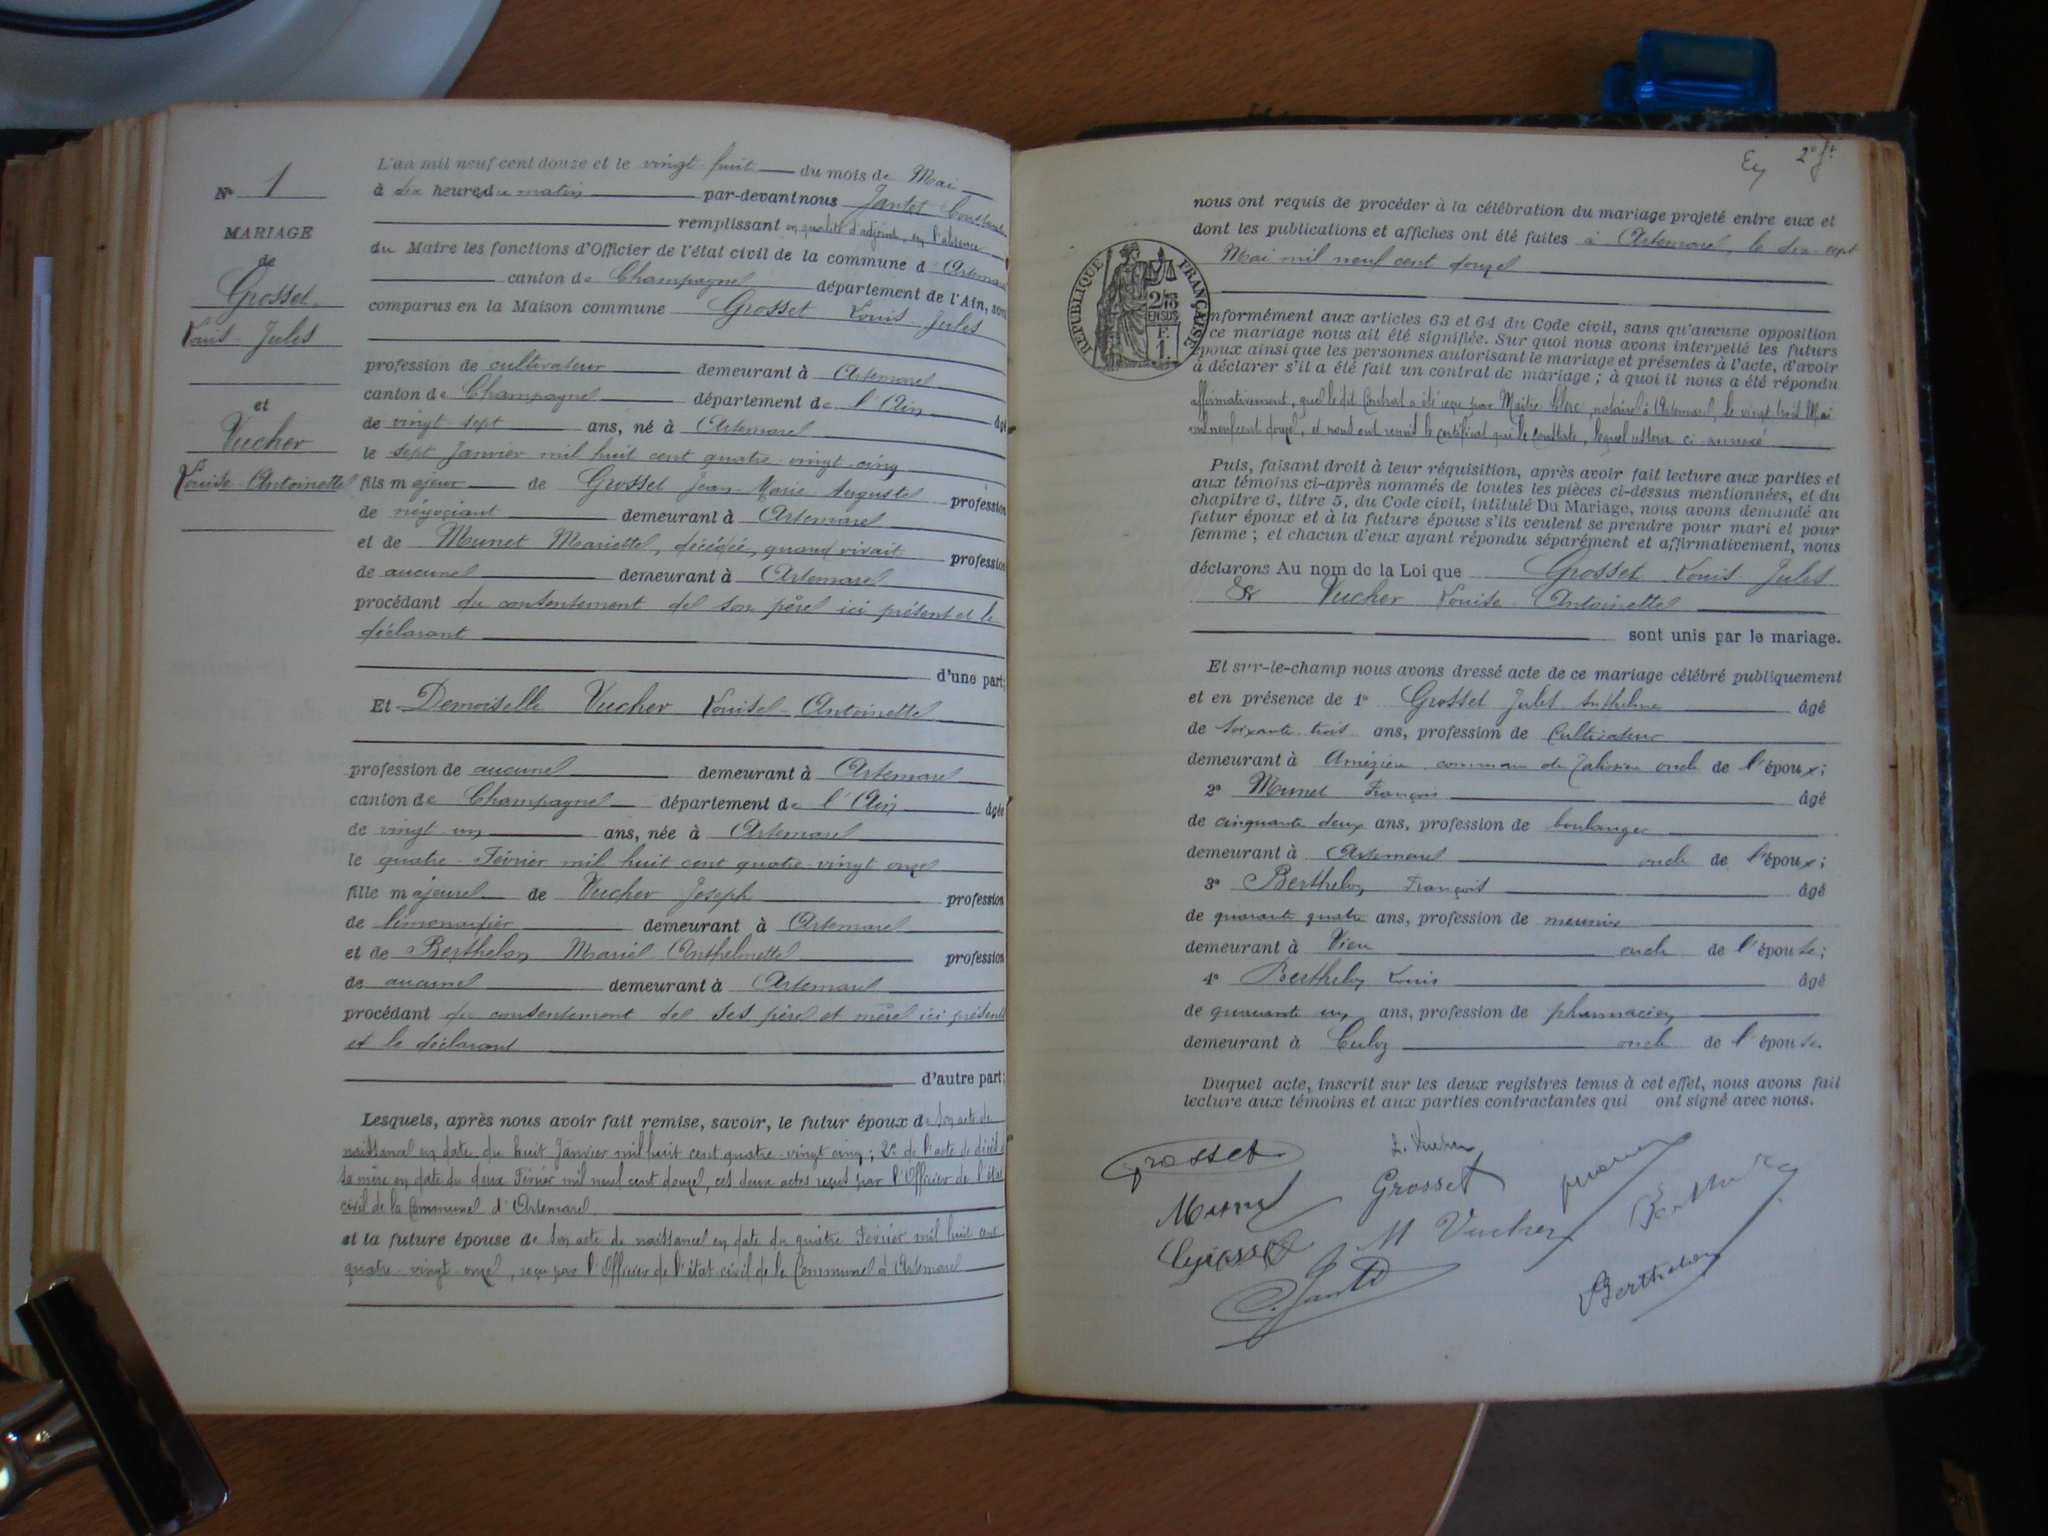 N° 1
MARIAGE
de
Grosset
Louis Jules
et
Vucher
Louise Antoinette
L'an mil neuf cent douze et le vingt huit du mois de Mai
à dix heures du matin par-devant nous Jantet
remplissant en qualité d'adjoint, en l'absence
du Maire les fonctions d'Officier de l'état civil de la commune d'Artemare
canton de Champagne département de l'Ain, sont
comparus en la Maison commune Grosset Louis Jules
profession de cultivateur demeurant à Artemare
canton de Champagne département de l'Ain âgé
de vingt sept ans, né à Artemare
le sept Janvier mil huit cent quatre vingt cinq
fils majeur de Grosset Jean Marie Auguste profession
de négociant demeurant à Artemare
et de Munet Mariette, décédée, quand vivait profession
de aucune demeurant à Artemare
procédant du consentement de son père ici présent et le
déclarant
d'une part;
Et Demoiselle Vucher Louise Antoinette
profession de aucune demeurant à Artemare
canton de Champagne département de l'Ain âgée
de vingt un ans, née à Artemare
le quatre Février mil huit cent quatre vingt onze
fille majeure de Vucher Joseph profession
de limonadier demeurant à Artemare
et de Berthelon Marie Anthelmette profession
de aucune demeurant à Artemare
procédant du consentement de ses père et mère ici présents
et le déclarant
d'autre part;
Lesquels, après nous avoir fait remise, savoir, le futur époux de son acte de
naissance en date du huit Janvier mil huit cent quatre-vingt cinq; 2° de l'acte de décès de
sa mère en date du deux Février mil neuf cent douze, ces deux actes reçus par l'Officier de l'état
civil de la Commune d'Artemare
et la future épouse de son acte de naissance en date du quatre Février mil huit cent
quatre-vingt-onze, reçu par l'Officier de l'état civil de la Commune d'Artemare
2e
nous ont requis de procéder à la célébration du mariage projeté entre eux et
dont les publications et affiches ont été faites à Artemare, le dix-sept
Mai mil neuf cent douze
RÉPUBLIQUE FRANÇAISE
2/10
EN SUS
F.
1.
nformément aux articles 63 et 64 du Code civil, sans qu'aucune opposition
ce mariage nous ait été signifiée. Sur quoi nous avons interpellé les futurs
époux ainsi que les personnes autorisant le mariage et présentes à l'acte, d'avoir
à déclarer s'il a été fait un contrat de mariage; à quoi il nous a été répondu
affirmativement, que le dit Contrat a été reçu par Maître Clerc, notaire à Artemare, le vingt trois Mai
mil neuf cent douze, et nous ont remis le certificat qui le constate, lequel restera ci-annexé
Puis, faisant droit à leur réquisition, après avoir fait lecture aux parties et
aux témoins ci-après nommés de toutes les pièces ci-dessus mentionnées, et du
chapitre 6, titre 5, du Code civil, intitulé Du Mariage, nous avons demandé au
futur époux et à la future épouse s'ils veulent se prendre pour mari et pour
femme; et chacun d'eux ayant répondu séparément et affirmativement, nous
déclarons Au nom de la Loi que Grosset Louis Jules
& Vucher Louise Antoinette
sont unis par le mariage.
Et sur-le-champ nous avons dressé acte de ce mariage célébré publiquement
et en présence de 1° Grosset Jules Anthelme âgé
de soixante trois ans, profession de Cultivateur
demeurant à Amézieu commune de Talissieu oncle de l'époux;
2° Munet François âgé
de cinquante deux ans, profession de boulanger
demeurant à Artemare oncle de l'époux;
3° Berthelon François âgé
de quarante quatre ans, profession de meunier
demeurant à Vieu oncle de l'épouse;
4° Berthelon Louis âgé
de quarante un ans, profession de pharmacien
demeurant à Culoz oncle de l'épouse.
Duquel acte, inscrit sur les deux registres tenus à cet effet, nous avons fait
lecture aux témoins et aux parties contractantes qui ont signé avec nous.
Grosset
L. Vucher
Grosset
Munet
M Vucher
Berthelon
Jantet
Berthelon